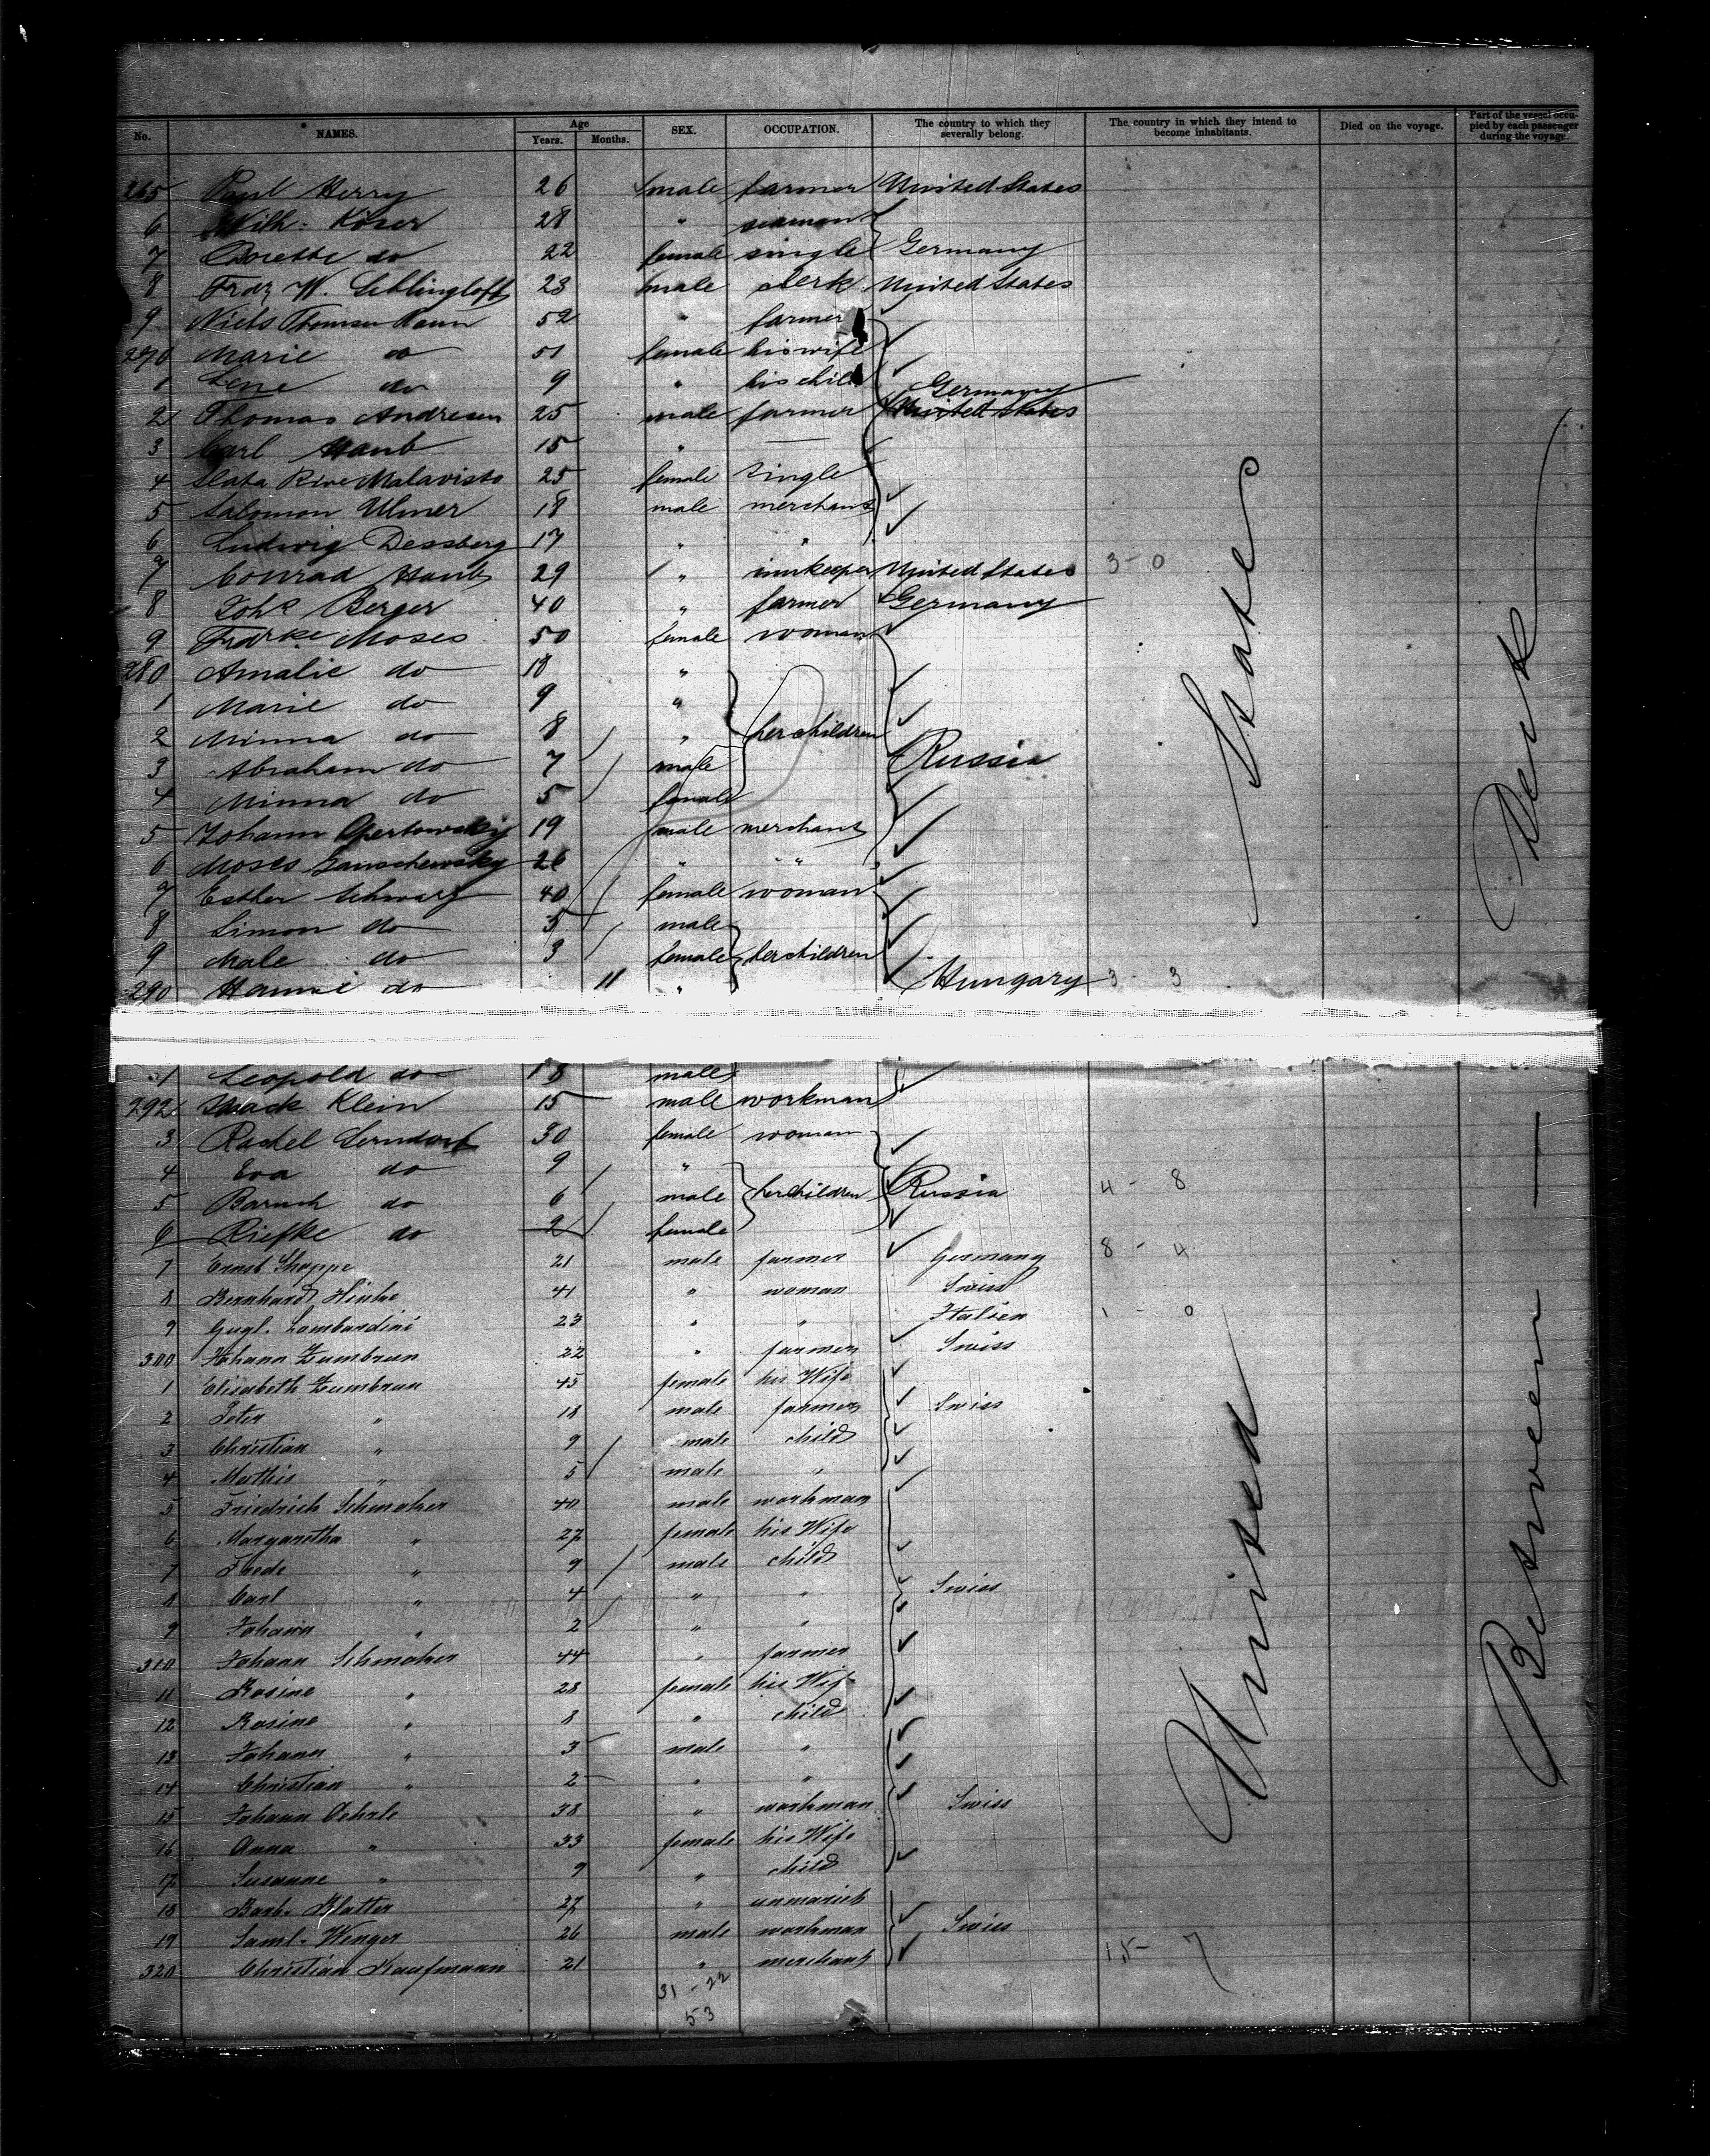 No. NAMES. Age Years. Months. SEX. OCCUPATION. The country to which they severally belong. The country in which they intend to become inhabitants. Died on the voyage. Part of the vessel occupied by each passenger during the voyage.
265 Paul Herry 26 male farmer United States
6 Wilh. Köser 28 " seaman
7 Dorette do 22 female single Germany
8 Frdr W. 23 male clerk United States
9 Niels Thomsen 52 " farmer
270 Marie do 51 female his wife
1 Lene do 9 " his child Germany
2 Thomas Andresen 25 male farmer United States
3 Carl Haub 15 "
4 Malavisto 25 female single
5 Salomon Ulmer 18 male merchant
6 Ludwig Dessberg 17 " "
7 Conrad Haub 29 " innkeeper United States 3-0
8 Joh. Berger 40 " farmer Germany
9 Frdrke Moses 50 female woman
280 Amalie do 18 "
1 Marie do 9 "
2 Minna do 8 " her children
3 Abraham do 7 male Russia
4 Minna do 5 female
5 Johann 19 male merchant
6 Moses 26 " "
7 Esther Schwarz 40 female woman
8 Simon do 5 male
9 Male do 3 female her children
290 Hanni do 11 " Hungary 3-3
1 Leopold do 18 male
292 Isaack Klein 15 male workman
3 Rachel 30 female woman
4 Eva do 9 "
5 Baruch do 6 male her children Russia 4-8
6 Riefke do 2 female
7 Ernst Shoppe 21 male farmer Germany 8-4
8 Bernhard 41 " woman Swiss
9 Gugl. Lombardini 23 " " Italien 1-0
300 Johann Zumbrun 22 " farmer Swiss
1 Elisabeth Zumbrun 45 female his Wife
2 Peter " 18 male farmer Swiss
3 Christian " 9 male child
4 Mathis " 5 male "
5 Friedrich Schmoker 40 male workman
6 Margaretha " 27 female his Wife
7 Frede " 9 male child
8 Carl " 4 " " Swiss
9 Johann " 2 " "
310 Johann Schmoker 44 " farmer
11 Rosine " 28 female his Wife
12 Rosine " 8 " child
13 Johann " 3 male "
14 Christian " 2 " "
15 Johann Oehrle 38 " workman Swiss
16 Anna " 33 female his Wife
17 Susanne " 9 " child
18 Barb. Blatter 27 " unmarieb
19 Saml. Wenger 26 male workman Swiss
320 Christian Kaufmann 21 " merchant 15-7
31-22
53
United States
Between Deck